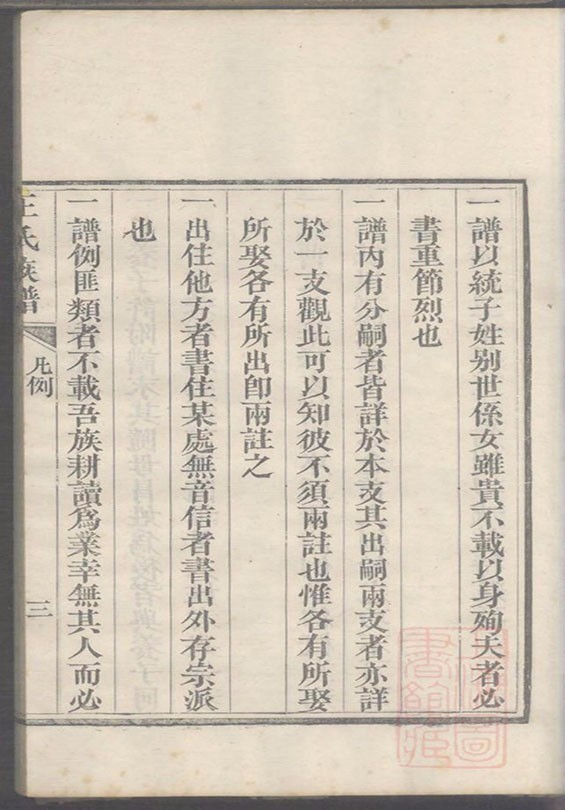 一譜以統子姓别世係女雖貴不載以身殉夫者必
書重節烈也
一譜內有分嗣者皆詳於本支其出嗣兩支者亦詳
於一支觀此可以知彼不須兩註也惟各有所娶
所娶各有所出卽兩註之
一出住他方者書住某處無音信者書出外存宗派
也
一譜例匪類者不載吾族耕讀爲業幸無其人而必
王氏族譜
凡例
三